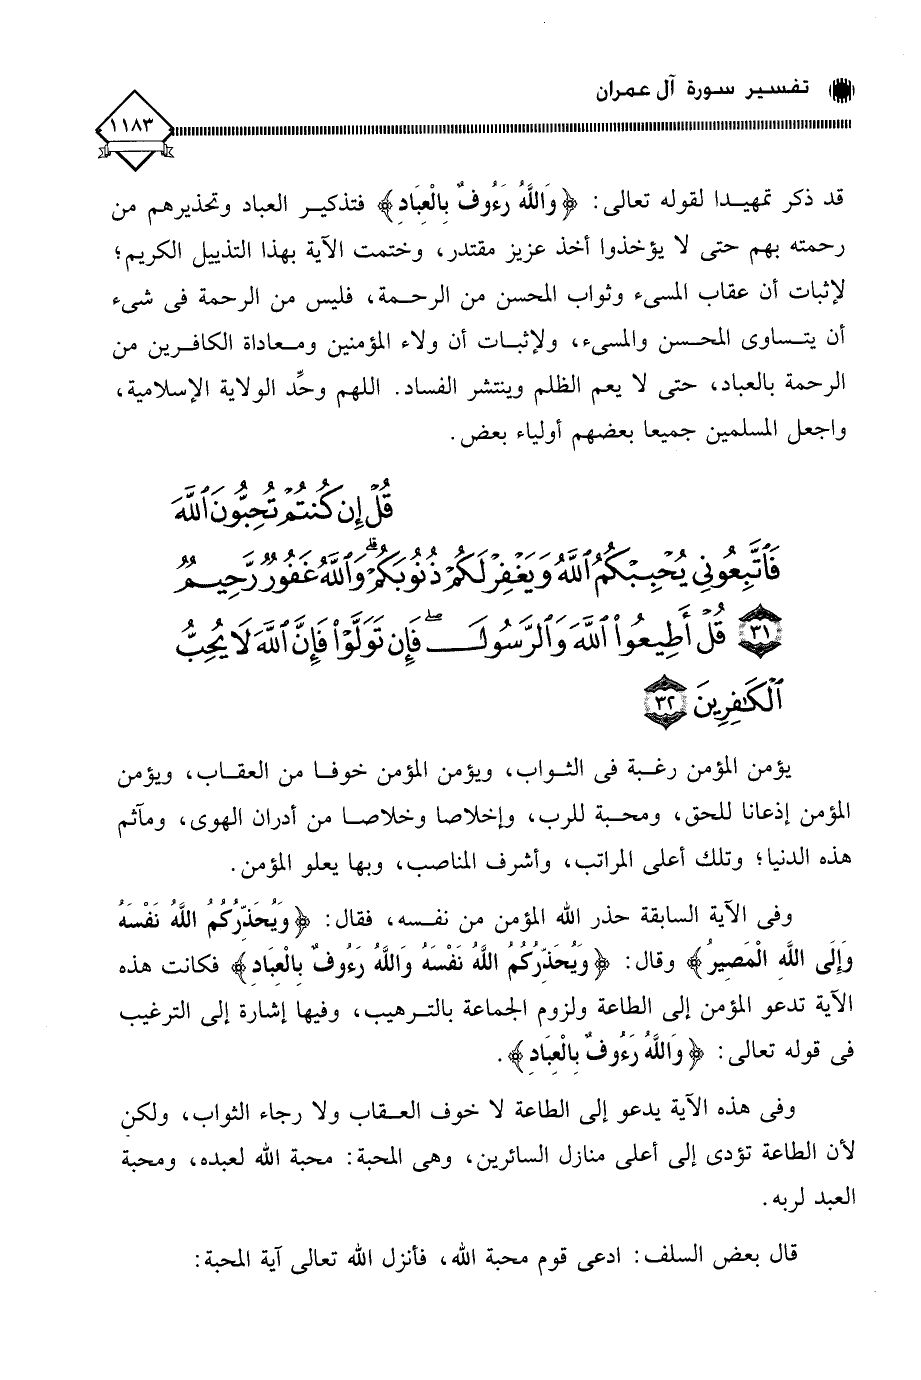 تفسير سورة آل عمران
١١٨٣
قد ذكر تمهيدا لقوله تعالى: ﴿وَاللَّهُ رَءُوفٌ بِالْعِبَادِ﴾ فتذكير العباد وتحذيرهم من
رحمته بهم حتى لا يؤخذوا أخذ عزيز مقتدر، وختمت الآية بهذا التذييل الكريم؛
لإثبات أن عقاب المسىء وثواب المحسن من الرحمة، فليس من الرحمة فى شىء
أن يتساوى المحسن والمسىء، ولإثبات أن ولاء المؤمنين ومعاداة الكافرين من
الرحمة بالعباد، حتى لا يعم الظلم وينتشر الفساد. اللهم وحِّد الولاية الإسلامية،
واجعل المسلمين جميعا بعضهم أولياء بعض.
قُلْ إِن كُنتُمْ تُحِبُّونَ ٱللَّهَ
فَٱتَّبِعُونِى يُحْبِبْكُمُ ٱللَّهُ وَيَغْفِرْ لَكُمْ ذُنُوبَكُمْ ۗ وَٱللَّهُ غَفُورٌ رَّحِيمٌ
٣١ قُلْ أَطِيعُوا۟ ٱللَّهَ وَٱلرَّسُولَ ۖ فَإِن تَوَلَّوْا۟ فَإِنَّ ٱللَّهَ لَا يُحِبُّ
ٱلْكَـٰفِرِينَ ٣٢
يؤمن المؤمن رغبة فى الثواب، ويؤمن المؤمن خوفا من العقاب، ويؤمن
المؤمن إذعانا للحق، ومحبة للرب، وإخلاصا وخلاصا من أدران الهوى، ومآثم
هذه الدنيا؛ وتلك أعلى المراتب، وأشرف المناصب، وبها يعلو المؤمن.
وفى الآية السابقة حذر الله المؤمن من نفسه، فقال: ﴿وَيُحَذِّرُكُمُ اللَّهُ نَفْسَهُ
وَإِلَى اللَّهِ الْمَصِيرُ﴾ وقال: ﴿وَيُحَذِّرُكُمُ اللَّهُ نَفْسَهُ وَاللَّهُ رَءُوفٌ بِالْعِبَادِ﴾ فكانت هذه
الآية تدعو المؤمن إلى الطاعة ولزوم الجماعة بالترهيب، وفيها إشارة إلى الترغيب
فى قوله تعالى: ﴿وَاللَّهُ رَءُوفٌ بِالْعِبَادِ﴾.
وفى هذه الآية يدعو إلى الطاعة لا خوف العقاب ولا رجاء الثواب، ولكن
لأن الطاعة تؤدى إلى أعلى منازل السائرين، وهى المحبة: محبة الله لعبده، ومحبة
العبد لربه.
قال بعض السلف: ادعى قوم محبة الله، فأنزل الله تعالى آية المحبة: